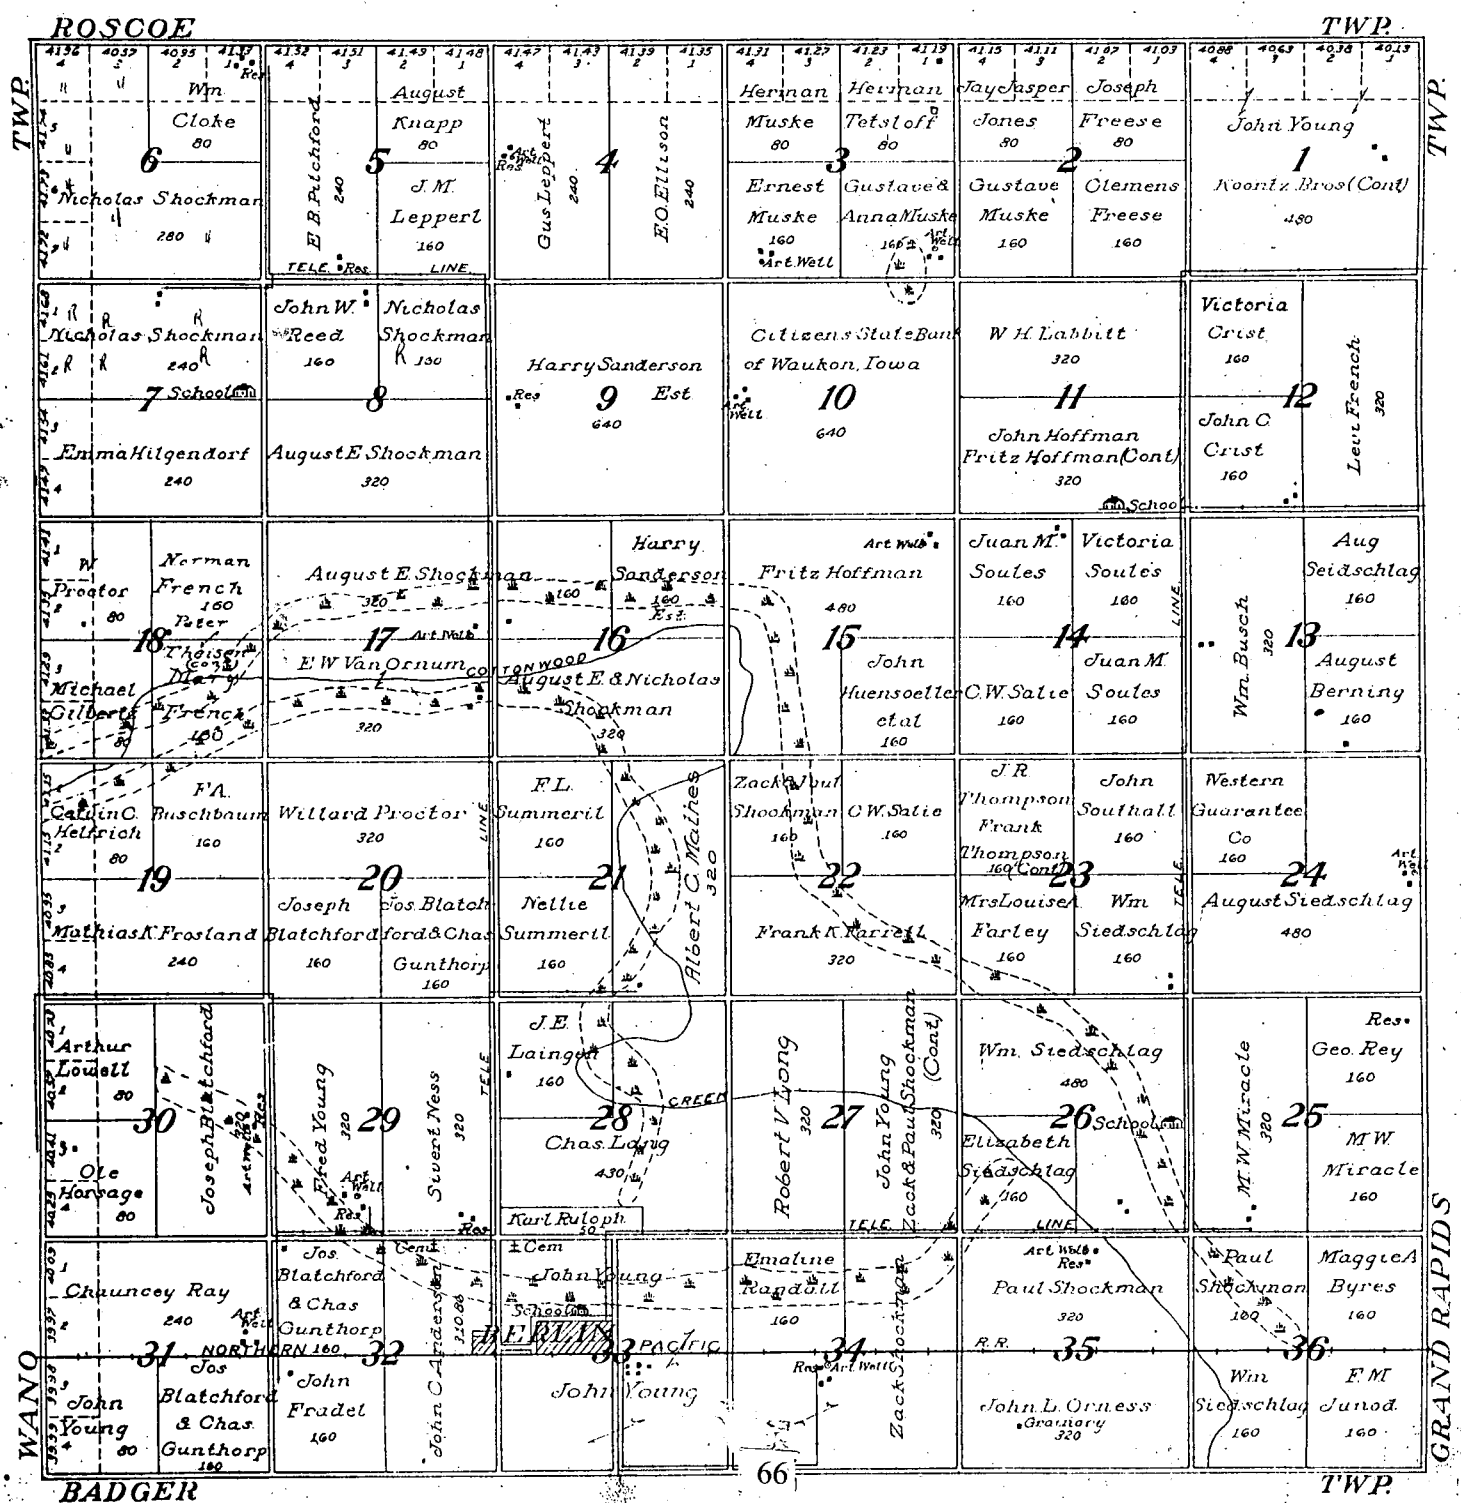 ROSCOE TWP.
TWP.
TWP.
41.96 40.97 40.95 41.33 41.32 41.51 41.49 41.48 41.47 41.43 41.39 41.35 41.31 41.27 41.23 41.19 41.15 41.11 41.07 41.03 40.88 40.63 40.38 40.13
Wm.
Cloke
80
Res
6
Nicholas Shockman
280
E B Pitchford
240
August
Knapp
80
5
J. M.
Lepperl
160
TELE. Res. LINE
Gus Leppert
240
Art Well
Res
4
E.O. Ellison
240
Herman
Muske
80
Herman
Tetsloff
80
3
Ernest
Muske
160
Art. Well
Gustave &
Anna Muske
160
Art Well
Jay Jasper
Jones
80
Joseph
Freese
80
2
Gustave
Muske
160
Clemens
Freese
160
John Young
1
Koontz Bros (Cont)
480
Nicholas Shockman
240
7 School
Emma Hilgendorf
240
John W.
Reed
160
Nicholas
Shockman
R 160
8
August E Shockman
320
Harry Sanderson
Est
Res
9
640
Citizens State Bank
of Waukon, Iowa
Art Well
10
640
W H Labbitt
320
11
John Hoffman
Fritz Hoffman (Cont)
320
School
Victoria
Crist
160
12
John C.
Crist
160
Levi French
320
W
Proctor
80
Norman
French
160
18
Peter
Thoisen
(cont)
Mary
French
160
Michael
Gilbertz
80
August E Shockman
320
17 Art. Well
E W Van Ornum
320
COTTONWOOD
160
Harry
Sanderson
160
Est.
16
August E & Nicholas
Shockman
320
Art Well
Fritz Hoffman
480
15
John
Huensoeller
et al
160
Juan M.
Soules
160
Victoria
Soules
160
14
C.W. Salie
160
Juan M.
Soules
160
LINE
Wm. Busch
320
13
Aug
Seidschlag
160
August
Berning
160
Calvin C.
Helfrich
80
F.A.
Buschbaum
160
19
Mathias K Frosland
240
Willard Proctor
320
LINE
20
Joseph
Blatchford
160
Jos. Blatch
ford & Chas
Gunthorp
160
F. L.
Summeril
160
21
Nellie
Summeril
160
Albert C. Maines
320
Zack & Paul
Shockman
160
C W. Salie
160
22
Frank K. Farrell
320
J. R.
Thompson
Frank
Thompson
160 (Cont)
John
Southall
160
23
Mrs Louise A
Farley
160
Wm
Siedschlag
160
TELE
Western
Guarantee
Co
160
Art Well
24
August Siedschlag
480
Arthur
Lowell
80
30
Ole
Horsage
80
Joseph Blatchford
320
Art Well
Res
Fred Young
320
Art Well
Res
29
Sivert Ness
320
Res
TELE
J. E.
Laingen
160
28
Chas. Long
430
Karl Ruloph
50
CREEK
Robert V Lyong
320
27
John Young
Zack & Paul Shockman
(Cont)
320
TELE. LINE
Wm. Siedschlag
480
26 School
Elizabeth
Siedschlag
160
M. W Miracle
320
25
Res.
Geo. Rey
160
M. W.
Miracle
160
Chauncey Ray
240
Art Well
31
John
Young
80
Jos
Blatchford
& Chas.
Gunthorp
160
NORTHERN PACIFIC R.R.
Jos.
Blatchford
& Chas
Gunthorp
160
32
John
Fradel
160
Cem
John C Anderson
310.86
Cem
John Young
School
BERLIN
33
John Young
Emaline
Randall
160
34
Res Art Well
Zack Shockman
Art Well
Res
Paul Shockman
320
35
John L. Orness
Granary
320
Paul
Shockman
160
Maggie A
Byres
160
36
Wm
Siedschlag
160
F. M
Junod.
160
WANO
GRAND RAPIDS
66
BADGER TWP.